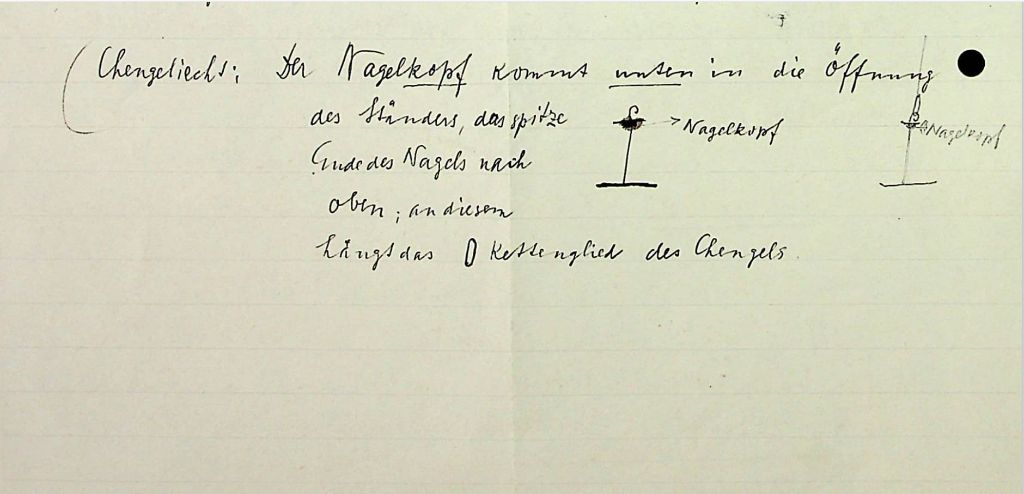 (Chengeliecht: Der Nagelkopf kommt unten in die Öffnung
des Ständers, das spitze
Ende des Nagels nach
oben; an diesem
hängt das Kettenglied des Chengels.
Nagelkopf
Nagelkopf